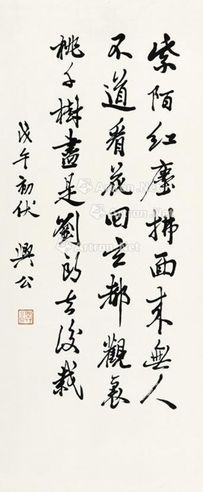 紫陌红塵拂面来無人
不道看花回玄都觀裏
桃千樹盡是劉郎去後栽
戊午初伏 興公